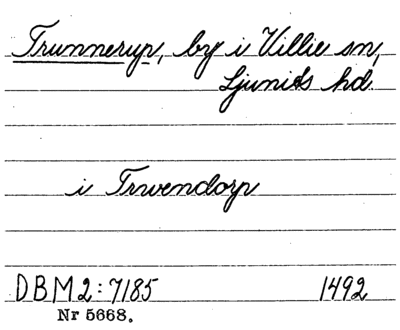 Trunnerup, by i Villie sn,
Ljunits hd.
i Trwendorp
DBM 2:7185 1492
Nr 5668.